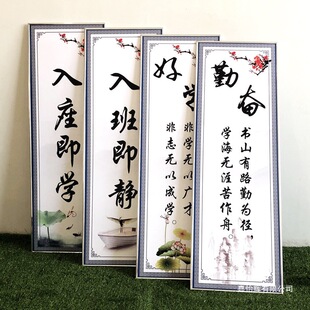 入座即学
入班即静
好学
非学无以广才
非志无以成学。
勤奋
书山有路勤为径，
学海无涯苦作舟。